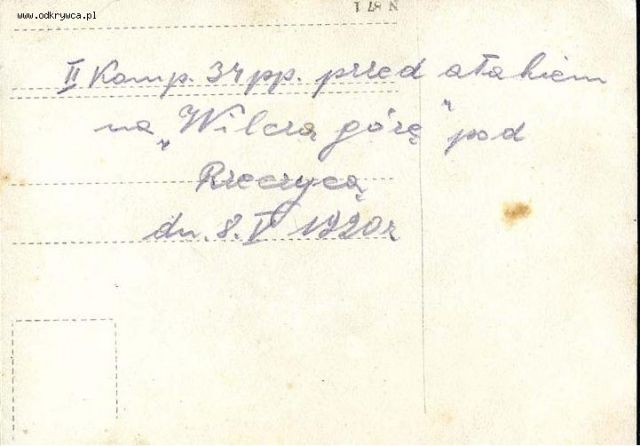 www.odkrywca.pl
N 87 1
II Komp. 34 pp. przed atakiem
na „Wilczą górę” pod
Rzeczycą
dn. 8. V 1920 r